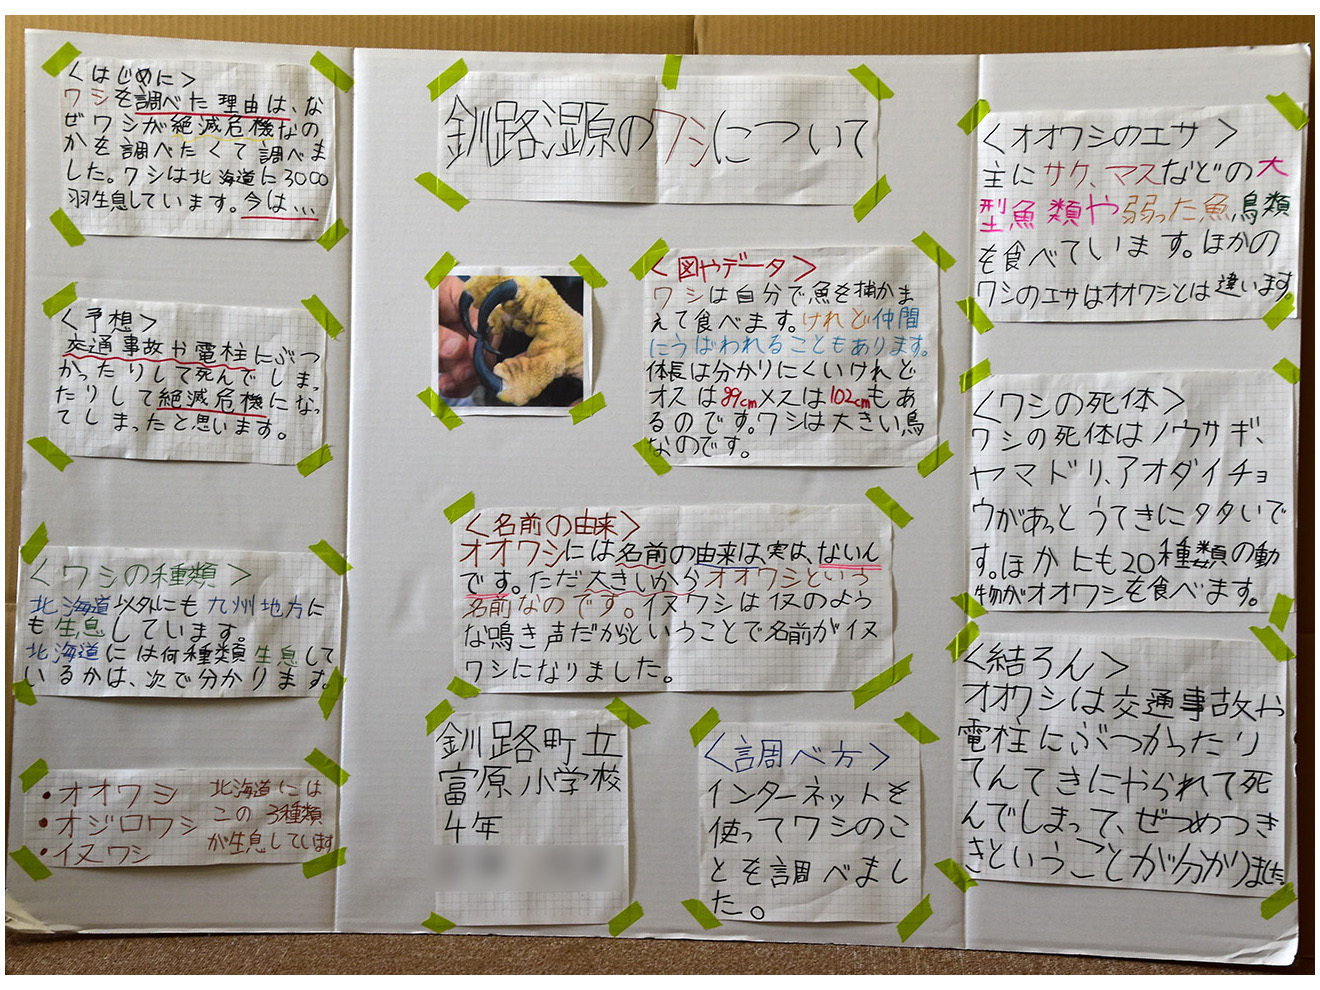 釧路湿原のワシについて
<はじめに>
ワシを調べた理由は、な
ぜワシが絶滅危機なの
かを調べたくて調べま
した。ワシは北海道に3000
羽生息しています。今は、、、
<予想>
交通事故や電柱にぶつ
かったりして死んでしまっ
たりして絶滅危機になっ
てしまったと思います。
<ワシの種類>
北海道以外にも九州地方に
も生息しています。
北海道には何種類生息して
いるかは、次で分かります。
・オオワシ
・オジロワシ
・イヌワシ
北海道には
この3種類
が生息しています
<図やデータ>
ワシは自分で魚を捕かま
えて食べます。けれど仲間
にうばわれることもあります。
体長は分かりにくいけれど
オスは89cmメスは102cmもあ
るのです。ワシは大きい鳥
なのです。
<名前の由来>
オオワシには名前の由来は、実は、ないん
です。ただ大きいからオオワシという
名前なのです。イヌワシは犬のよう
な鳴き声だからということで名前がイヌ
ワシになりました。
釧路町立
富原小学校
4年
<調べ方>
インターネットを
使ってワシのこ
とを調べまし
た。
<オオワシのエサ>
主にサケ、マスなどの大
型魚類や弱った魚,鳥類
を食べています。ほかの
ワシのエサはオオワシとは違います。
<ワシの死体>
ワシの死体はノウサギ、
ヤマドリ、アオダイチョ
ウがあっとうてきにタタいで
す。ほかにも20種類の動
物がオオワシを食べます。
<結ろん>
オオワシは交通事故や
電柱にぶつかったり
てんてきにやられて死
んでしまって、ぜつめつき
きということが分かりました